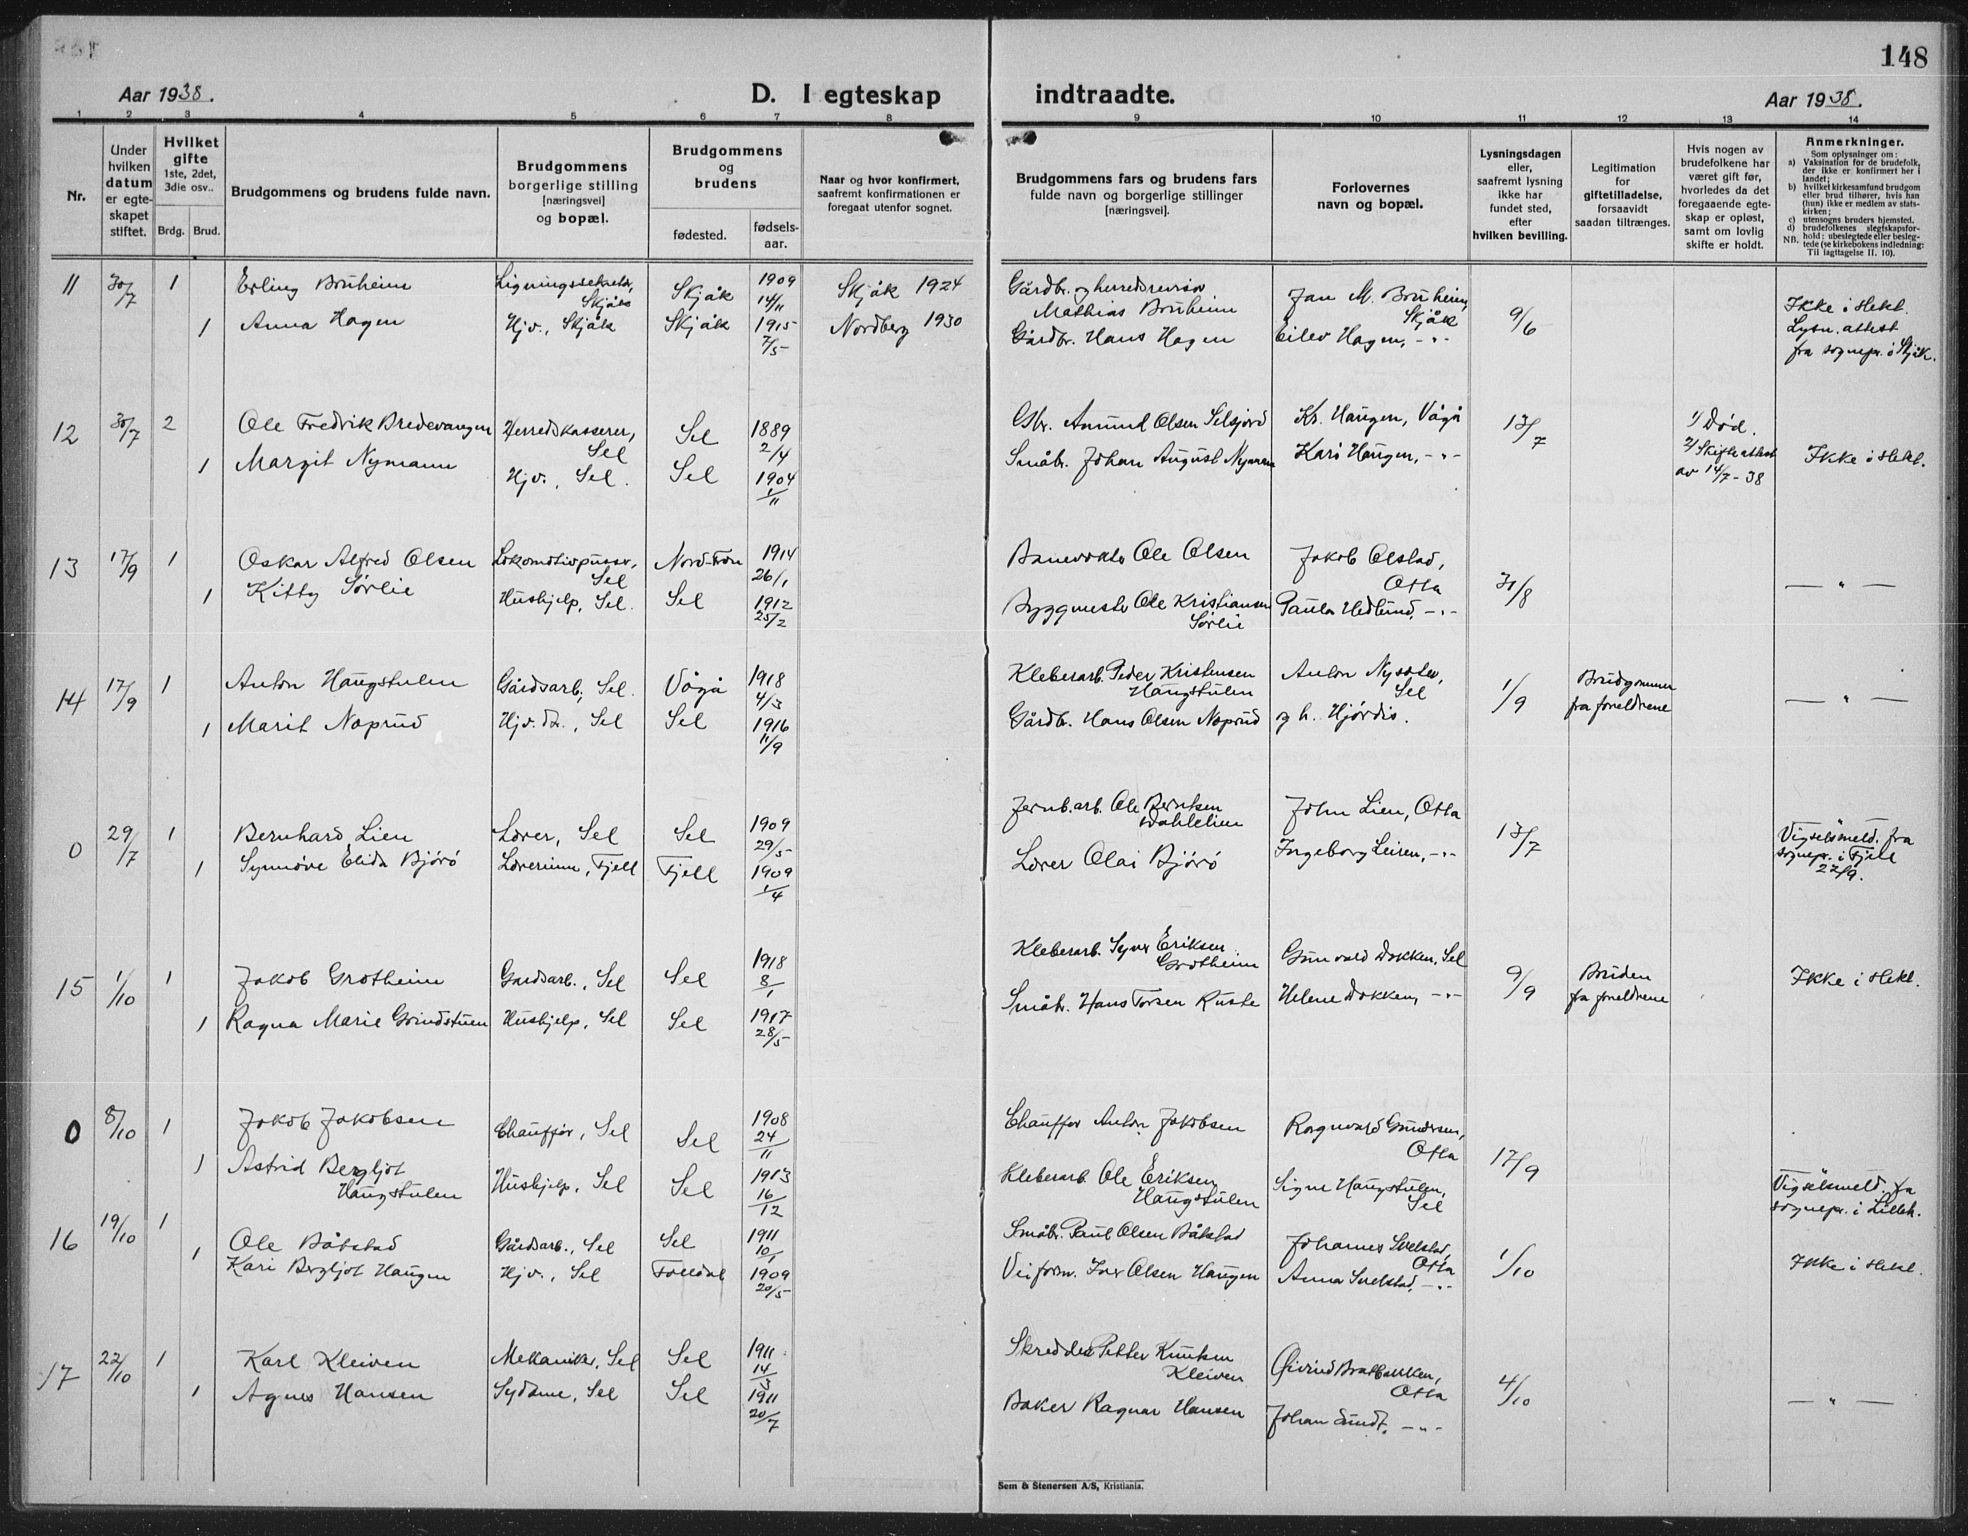 148
Aar 1938.
D. I egteskap indtraadte.
Aar 1938.
1 2 3 4 5 6 7 8 9 10 11 12 13 14
Nr.
Under hvilken datum er egteskapet stiftet.
Hvilket gifte 1ste, 2det, 3die osv..
Brdg. Brud.
Brudgommens og brudens fulde navn.
Brudgommens borgerlige stilling [næringsvei] og bopæl.
Brudgommens og brudens
fødested.
fødselsaar.
Naar og hvor konfirmert, saafremt konfirmationen er foregaat utenfor sognet.
Brudgommens fars og brudens fars fulde navn og borgerlige stillinger [næringsvei].
Forlovernes navn og bopæl.
Lysningsdagen eller, saafremt lysning ikke har fundet sted, efter hvilken bevilling.
Legitimation for giftetilladelse, forsaavidt saadan tiltrænges.
Hvis nogen av brudefolkene har været gift før, hvorledes da det foregaaende egteskap er opløst, samt om lovlig skifte er holdt.
Anmerkninger.
Som oplysninger om:
a) Vaksination for de brudefolk, der ikke er konfirmert her i landet;
b) hvilket kirkesamfund brudgom eller brud tilhører, hvis han (hun) ikke er medlem av statskirken;
c) utensogns bruders hjemsted.
d) brudefolkenes slegtskapsforhold: ubeslegtede eller beslegtede (se kirkebokens indledning:
NB. Til iagttagelse II. 10).
11 30/7 1 Erling Bruheim Ligningssekretær, Skjåk Skjåk 1909 14/11 Skjåk 1924 Gårdbr. og herredsrevisor Mathias Bruheim Jan M. Bruheim, Skjåk 9/6 Ikke i Hekt. Lysn. attest fra sognepr. i Skjåk.
1 Anna Hagen Hjv., Skjåk Skjåk 1915 7/5 Nordberg 1930 Gårdbr. Hans Hagen Eilev Hagen, -"-
12 30/7 2 Ole Fredrik Bredevangen Herredskasserer, Sel Sel 1889 2/4 Gbr. Amund Olsen Selsjord Kr. Haugen, Vågå 13/7 1/ Død. 2/ Skifteattest av 14/7-38 Ikke i Hekt.
1 Margit Nymann Hjv., Sel. Sel 1904 1/11 Småbr. Johan August Nymann Kari Haugen, -"-
13 17/9 1 Oskar Alfred Olsen Lokomotivpusser, Sel Nord-Fron 1914 26/1 Banevokter Ole Olsen Jakob Olstad, Otta 31/8 — " —
1 Kitty Sørlie Hushjelp, Sel. Sel 1912 25/2 Byggmester Ole Kristiansen Sørlie Paula Hedlund, -"-
14 17/9 1 Anton Haugstulen Gårdsarb., Sel. Vågå 1918 4/3 Kleberarb. Peder Kristensen Haugstulen Anton Nysæter, Sel 1/9 Brudgommen fra foreldrene — " —
1 Marit Noprud Hjv. dt., Sel Sel 1916 11/9 Gårdbr. Hans Olsen Noprud og h. Hjørdis.
0 29/7 1 Bernhard Lien Lærer, Sel Sel 1909 29/5 Jernb.arb. Ole Berntsen Dahlelien John Lien, Otta 13/7 Vigselsmeld. fra sognepr. i Fjell 22/9.
1 Synnøve Elida Bjórö Lærerinne, Fjell Fjell 1909 1/4 Lærer Olai Bjórö Ingeborg Leiren, -"-
15 1/10 1 Jakob Grotheim Gardsarb., Sel Sel 1918 8/1 Kleberarb. Syver Eriksen Grotheim Gunvald Dokken, Sel 9/9 Bruden fra foreldrene Ikke i Hekt.
1 Ragna Marie Grindstuen Hushjelp, Sel Sel 1917 28/5 Småbr. Hans Torsen Ruste Helene Dokken, -"-
0 8/10 1 Jakob Jakobsen Chauffør, Sel Sel 1908 24/11 Chauffør Anton Jakobsen Ragnvald Gundersen, Otta 17/9
1 Astrid Bergljot Haugstulen Hushjelp, Sel Sel 1913 16/12 Kleberarb. Ole Eriksen Haugstulen Signe Haugstulen, Sel Vigselsmeld. fra sognepr. i Lilleh.
16 19/10 1 Ole Båtstad Gårdsarb., Sel Sel 1911 10/1 Småbr. Paul Olsen Båtstad Johannes Svelstad, Otta 1/10 Ikke i Hekt.
1 Kari Bergljot Haugen Hjv., Sel Folldal 1909 20/5 Veiform. Iver Olsen Haugen Anna Svelstad, -"-
17 22/10 1 Karl Kleiven Mekaniker, Sel Sel 1911 14/3 Skredder Petter Knutsen Kleiven Øivind Bratbakken, Otta 4/10 — " —
1 Agnes Hansen Sydame, Sel Sel 1911 20/7 Baker Ragnar Hansen Johan Sundt, -"-
Sem & Stenersen A/S, Kristiania.